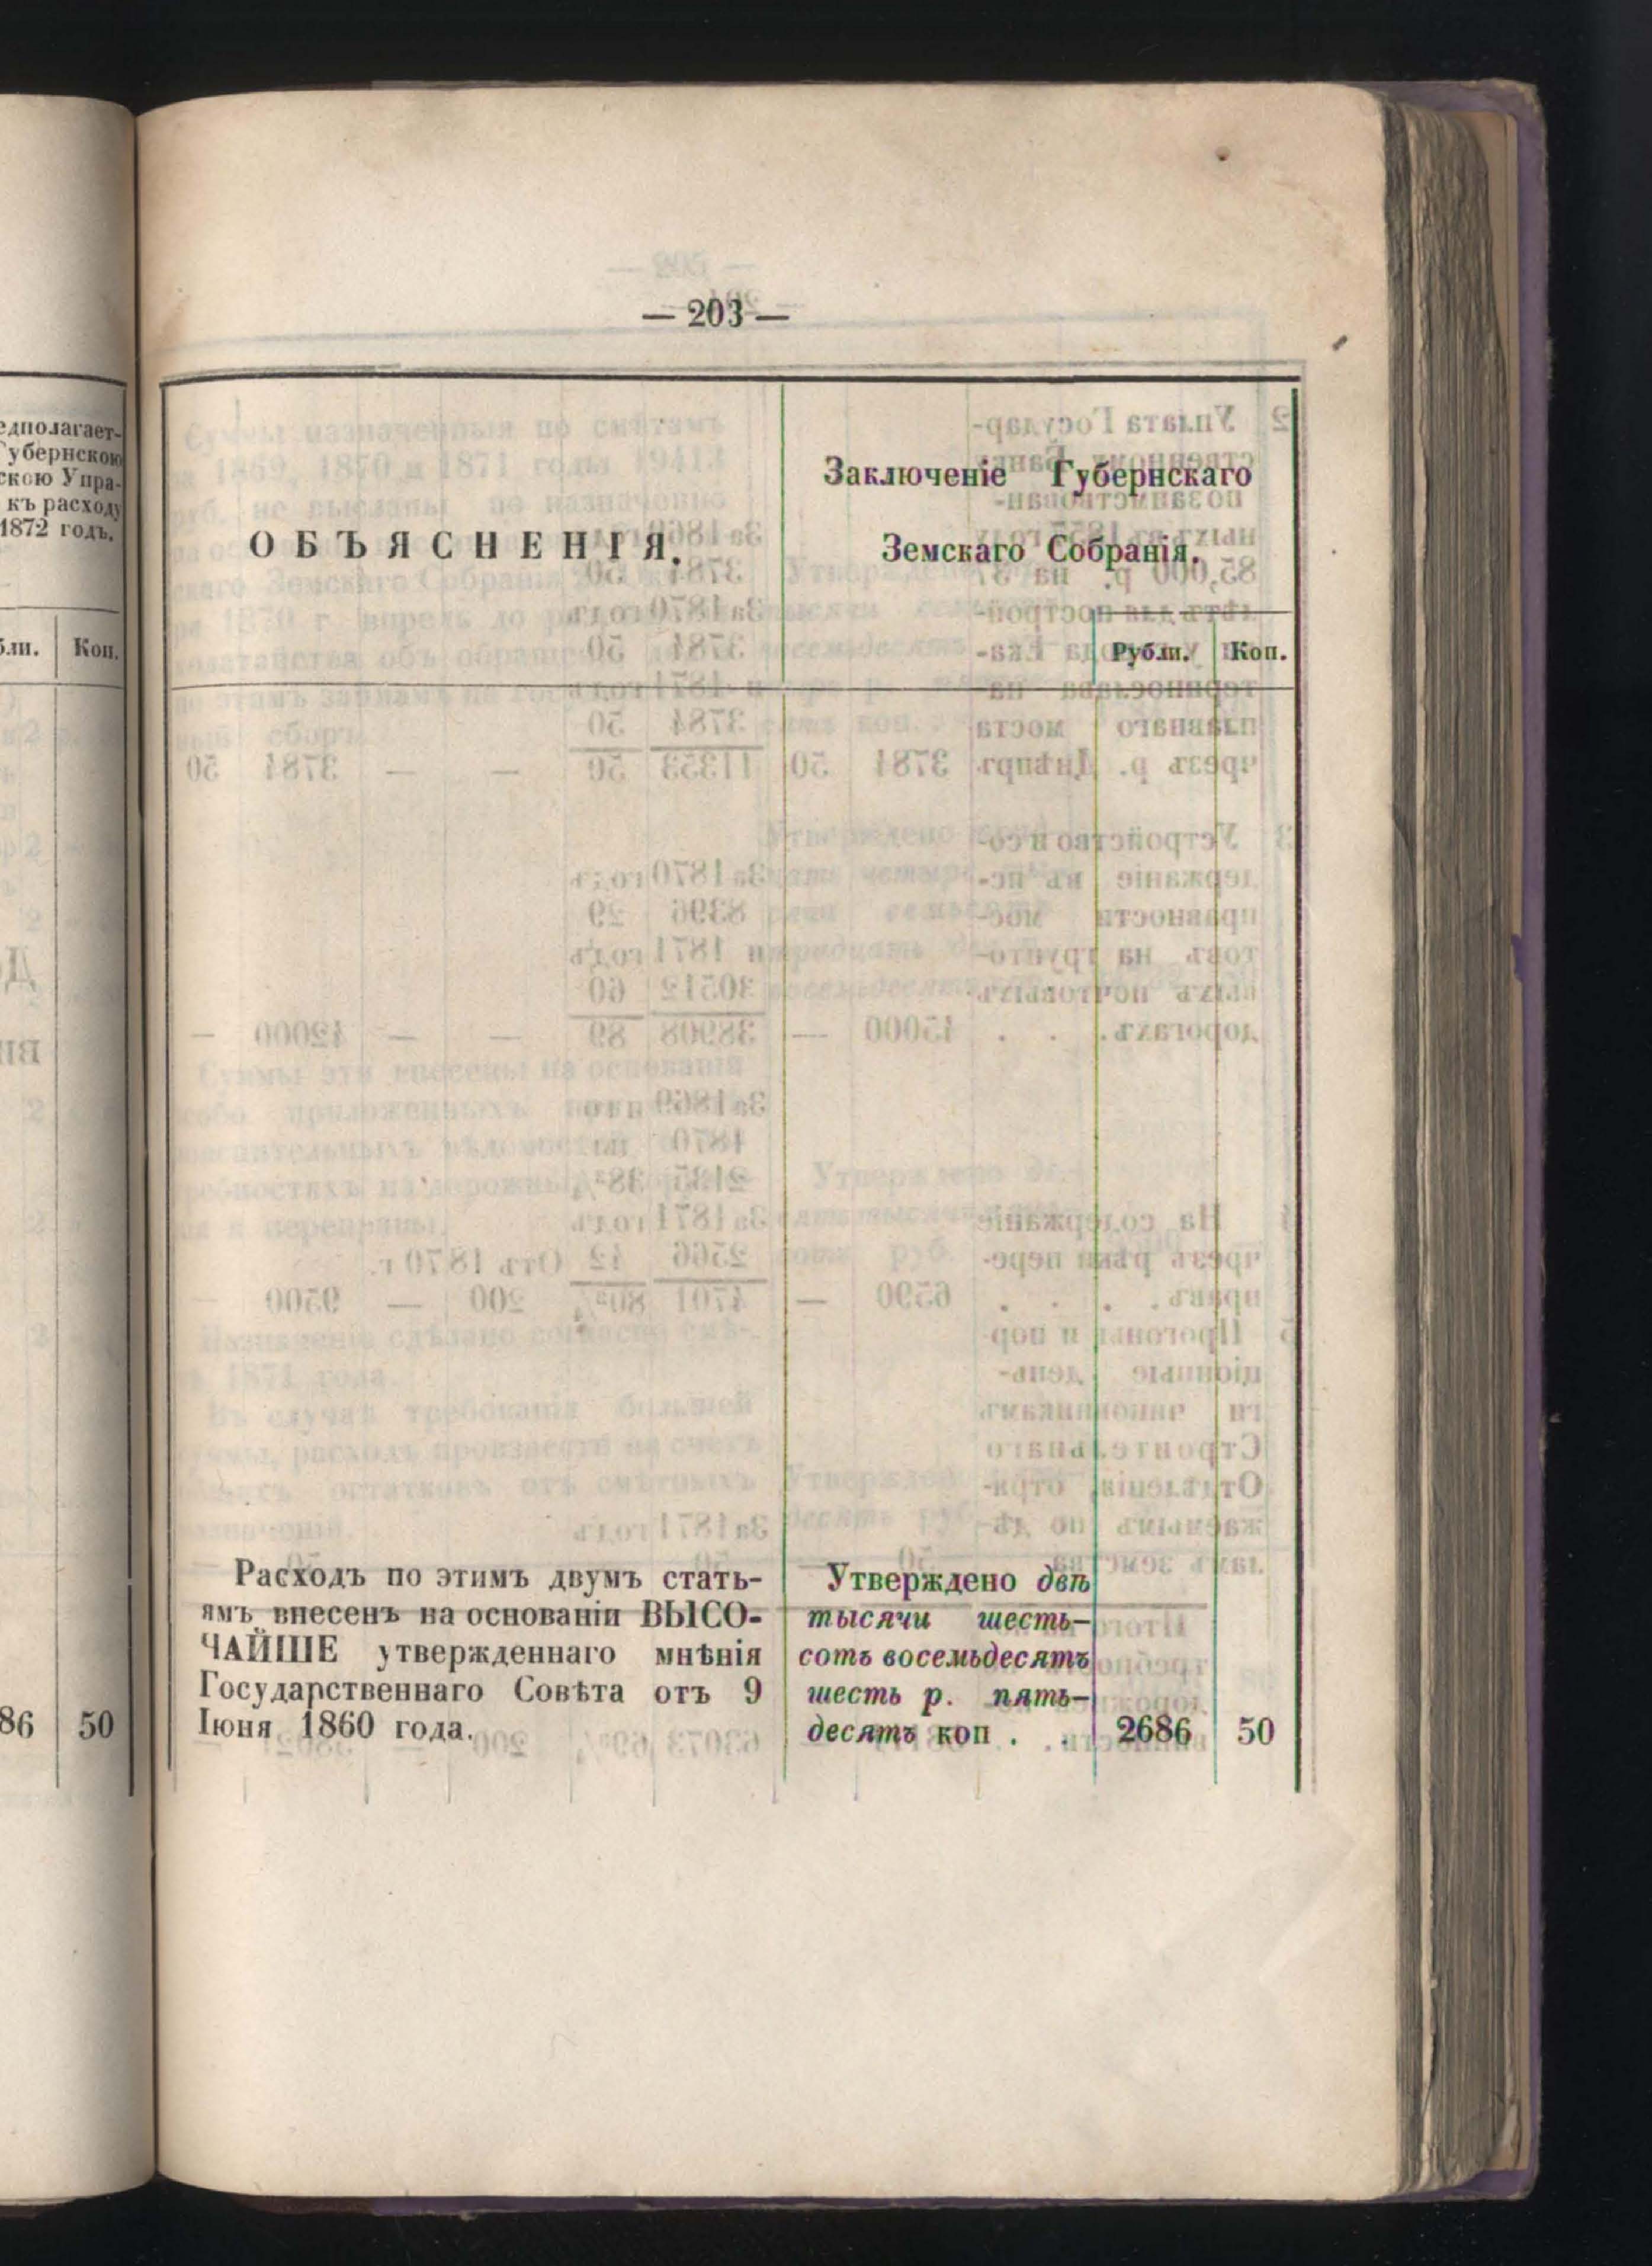 — 203 —
едполагает-
Губернскою
скою Упра-
къ расходу
1872 годъ.
Коп.
86 50
ОБЪЯСНЕНІЯ.
Заключеніе Губернскаго
Земскаго Собранія.
Рубли. Коп.
Расходъ по этимъ двумъ стать-
ямъ внесенъ на основаніи ВЫСО-
ЧАЙШЕ утвержденнаго мнѣнія
Государственнаго Совѣта отъ 9
Іюня 1860 года.
Утверждено двѣ
тысячи шесть-
сотъ восемьдесятъ
шесть р. пять-
десятъ коп . . 2686 50